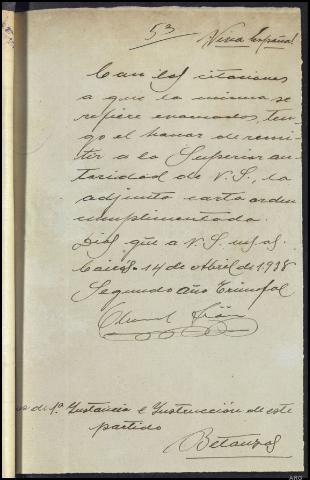 53
¡Viva España!
Con las citaciones
a que la misma se
refiere enamados, ten-
go el honor de remi-
tir a la Superior au-
toridad de V. S., la
adjunta carta orden
cumplimentada.
Dios gũe a V. S. ms. as.
14 de Abril de 1938
Segundo Año Triunfal
de 1ª Instancia e Instrucción de este
partido
Betanzos